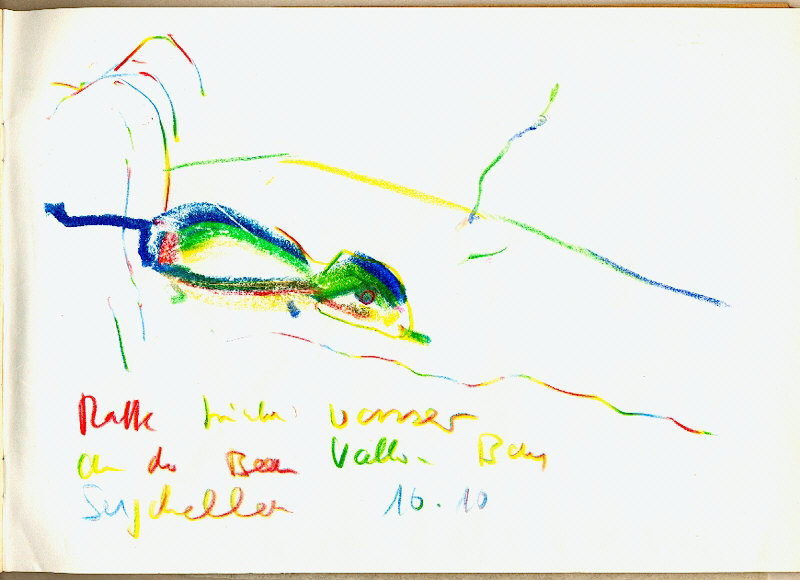 Ratte trinkt vasser
an der Beau Vallon Bay
Seychellen 16.10